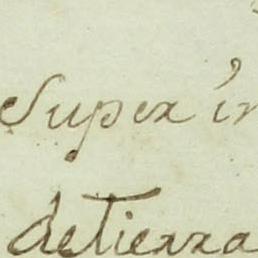 Super in
detierra